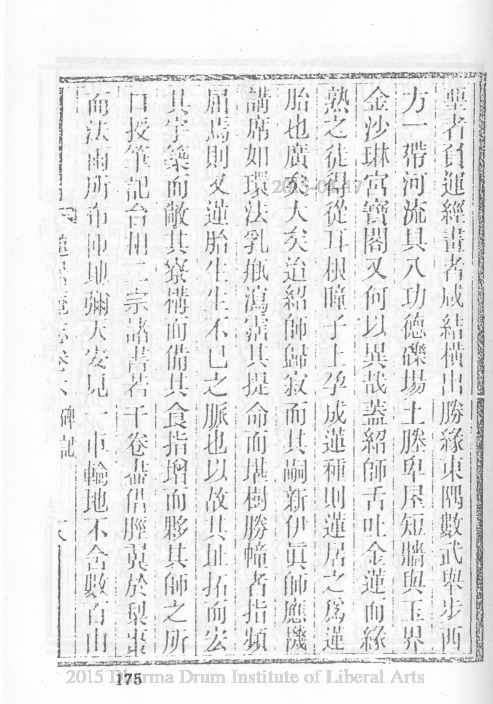 聖者負運經畫者咸結橫出勝緣東隅數武與步西
方一帶河流具八功德礫場土塍卑屋短牆與玉界
金沙琳宮寶閣又何以異哉蓋紹師舌吐金蓮而緣
熟之徒得從耳根瞳子上孕成蓮種則蓮居之爲蓮
胎也廣矣大矣迨紹師歸寂而其嗣新伊眞師應機
講席如環法乳瓶瀉窹其提命而堪樹勝幢者指頻
屈焉則又蓮胎生生不已之脈也以故其址拓而宏
其宇築而敞其寮構而備其食指增而夥其師之所
口授筆記台相二宗諸書若干卷盡借脛翼於梨棗
而法雨所布即地彌天安見一車輪地不含數百由
蓮居菴志卷六 碑記
2015-04-17
175
2015 Dharma Drum Institute of Liberal Arts